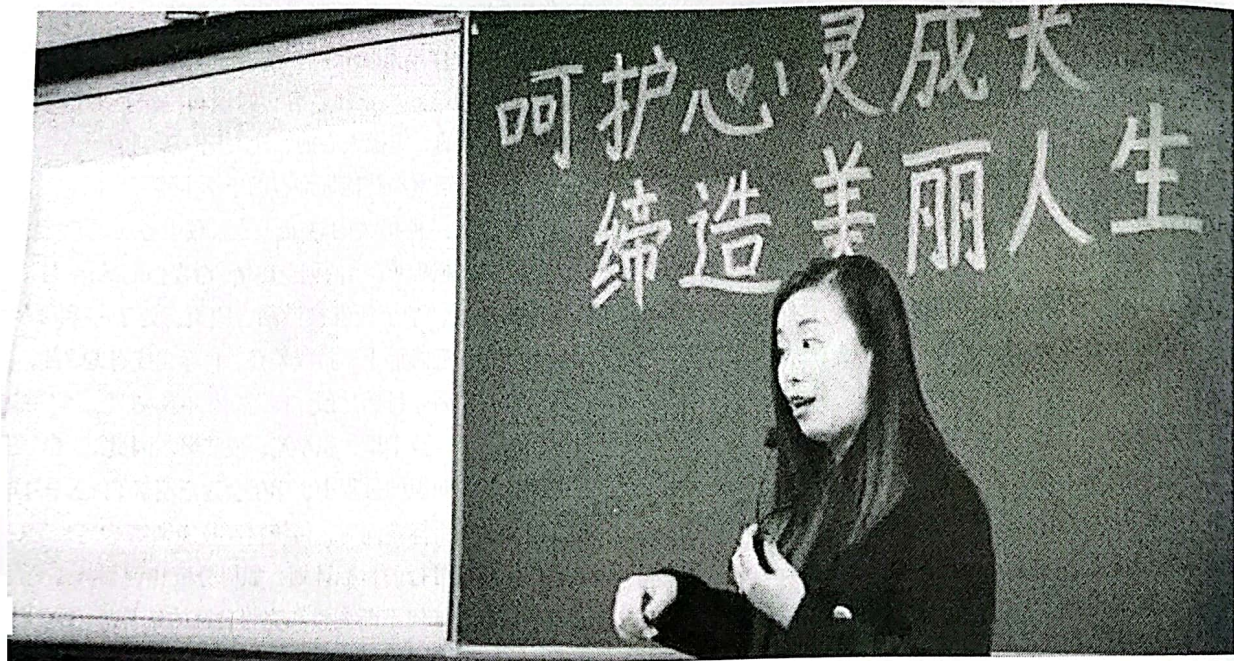 呵护心灵成长
缔造美丽人生